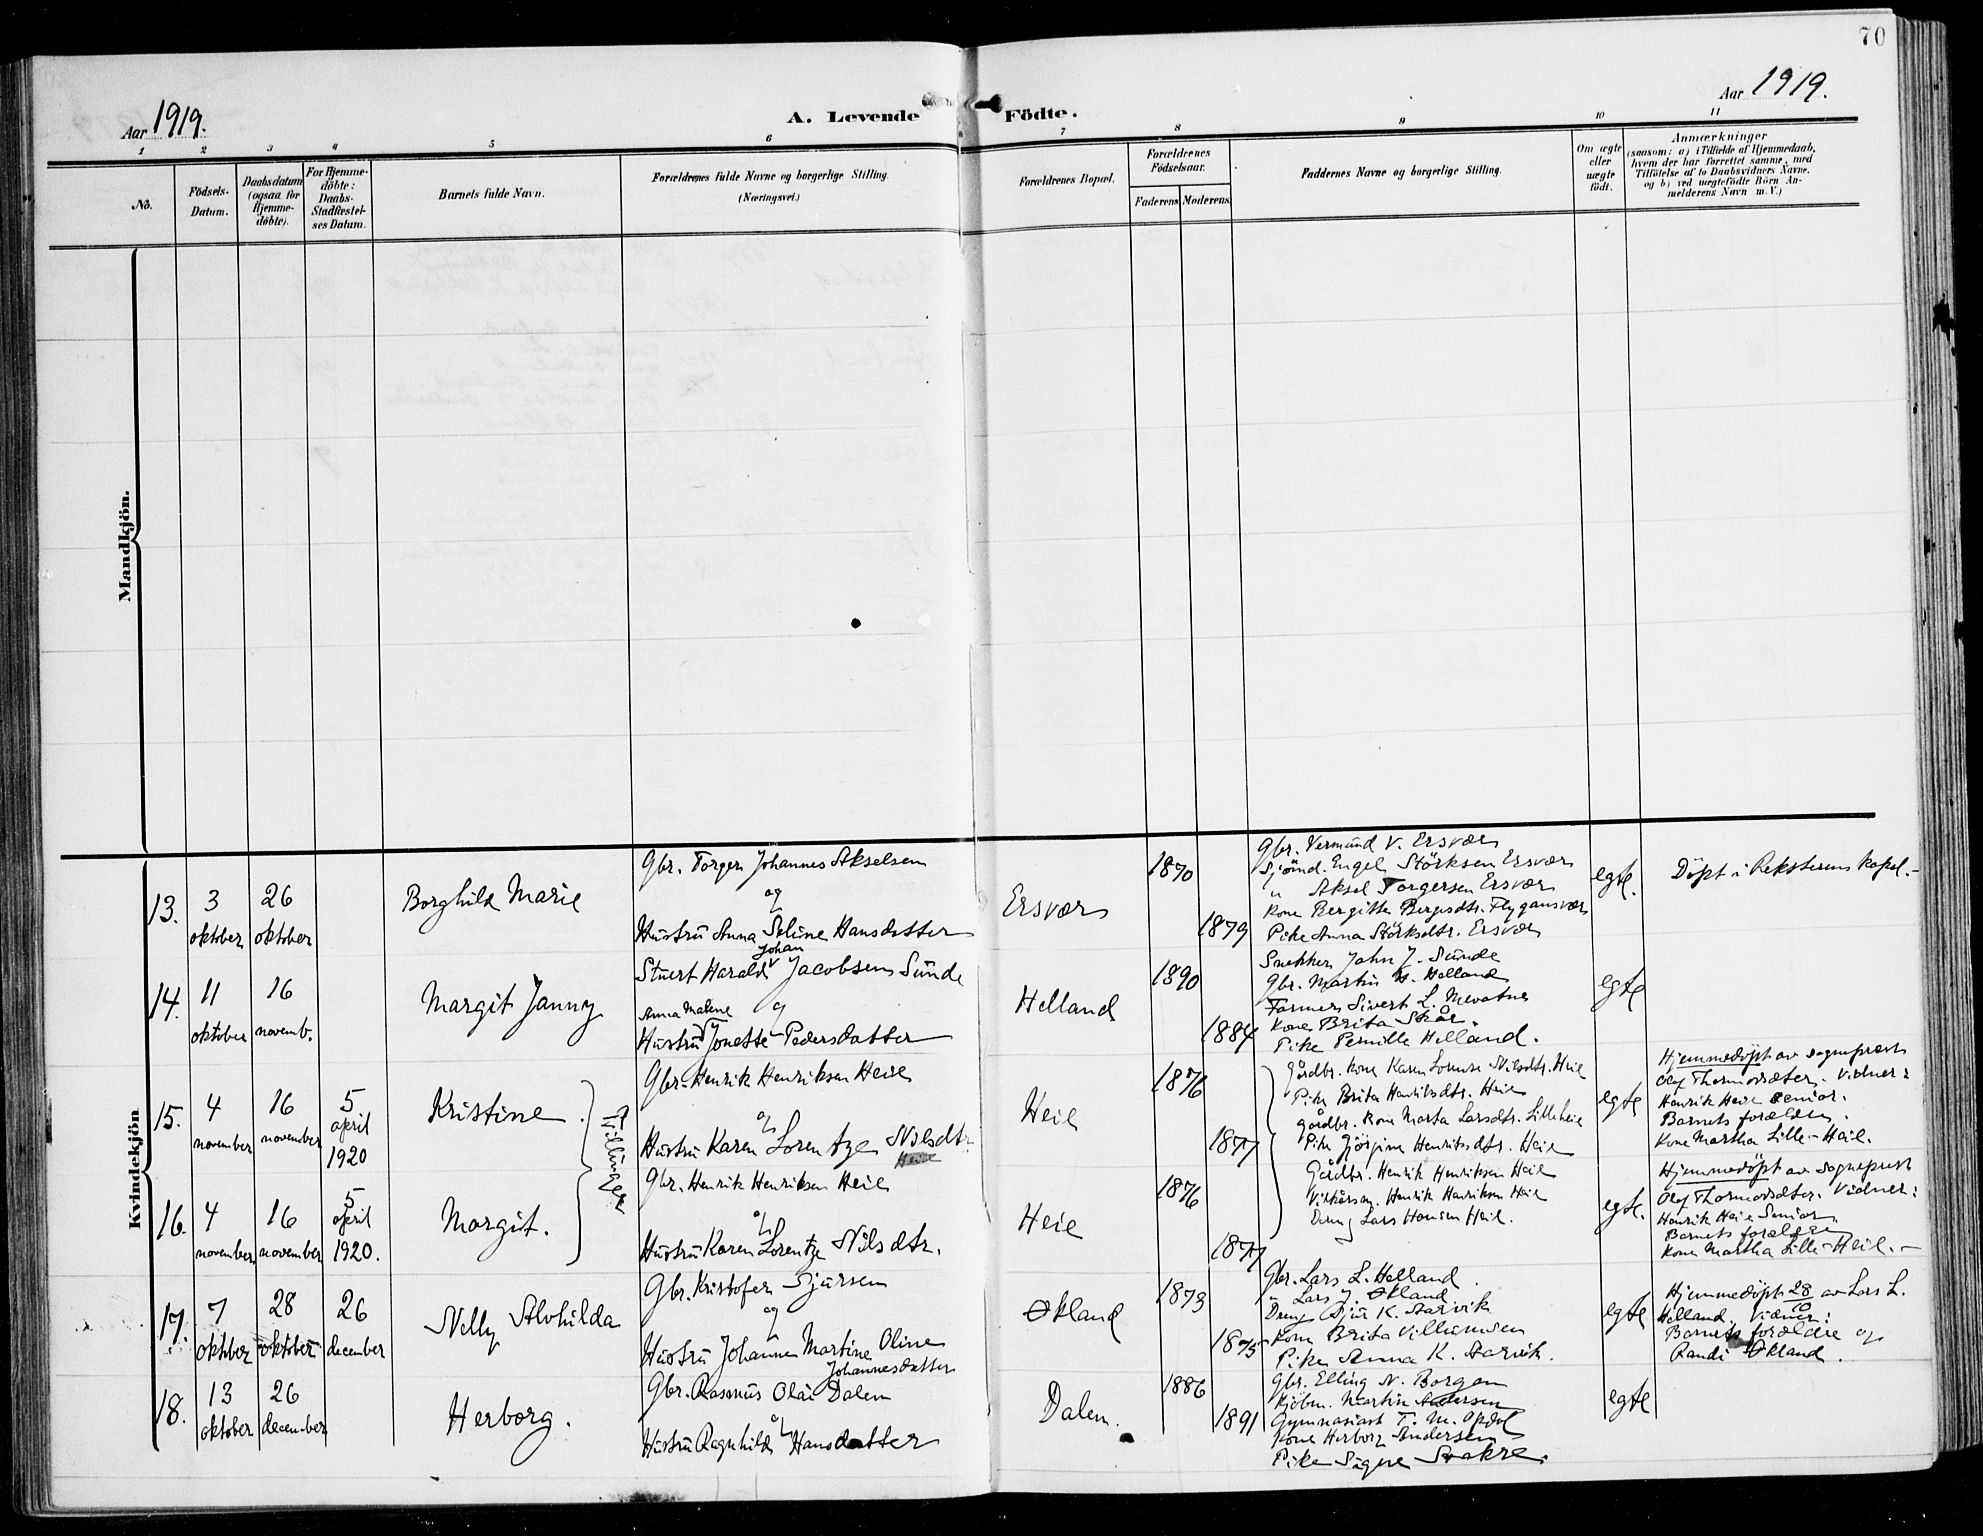 70
Aar 1919.
A. Levende Födte.
Aar 1919.
1 2 3 4 5 6 7 8 9 10 11
No.
Födsels-
Datum.
Daabsdatum
(ogsaa for
Hjemme-
döbte).
For Hjemme-
döbte:
Daabs-
Stadfæstel-
ses Datum.
Barnets fulde Navn.
Forældrenes fulde Navne og borgerlige Stilling.
(Næringsvei.)
Forældrenes Bopæl.
Forældrenes
Födselsaar.
Faderens
Moderens
Faddernes Navne og borgerlige Stilling.
Om ægte
eller
uægte
födt.
Anmærkninger
(saasom: a) i Tilfælde af Hjemmedaab,
hvem der har forrettet samme, med
Tilföielse af to Daabsvidners Navne,
og b) ved uegtefödte Börn An-
melderens Navn m. V.)
Mandkjön.
Kvindekjön
13.
3
oktober
26
oktober
Borghild Marie
Gbr. Torger Johannes Akselsen
og
Hustru Anna Seline Hansdatter
Ersvær
1870
1879
Gbr. Vermund V. Ersvær
Sjömd. Engel Störksen Ersvær
" Aksel Torgersen Ersvær
Kone Bergitte Bergesdtr. Flygansvær
Pike Anna Störksdtr. Ersvær
egte.
Döpt i Reksterens kapel.-
14.
11
oktober
16
novemb.
Margit Janny
Johan
Stuert Harald Jacobsen Sunde
og
Anna Malene
Hustru Jonette Pedersdatter
Helland
1890
1884
Snekker John J. Sunde
Gbr. Martin H. Helland
Farmer Sivert L. Mevatne
Kone Brita Skår.
Pike Pernille Helland.
egte
15.
4
november
16
november
5
april
1920
Kristine
Tvillinger
Gbr. Henrik Henriksen Heie
og
Hustru Karen Lorentze Nilsdtr.
Heie
Heie
1876
1877
Gårdbr. kone Karen Lorense Nilsdtr. Heie
Pike Brita Henriksdtr. Heie
Gårdbr. kone Marta Larsdtr. Lilleheie
Pike Jörgine Henriksdtr. Heie
egte
Hjemmedöpt av sogneprest
Olaf Thormodsæter. Vidner:
Henrik Heie senior.
Barnets forældre.
Kone Martha Lille-Heie.
16.
4
november
16
november
5
april
1920.
Margit.
Gbr. Henrik Henriksen Heie
og
Hustru Karen Lorentze Nilsdtr.
Heie
1876
1877
Gårdbr. Henrik Henriksen Heie
Vilkårsm. Henrik Henriksen Heie
Dreng Lars Hansen Heie.
egte.
Hjemmedöpt av sogneprest
Olaf Thormodsæter. Vidner:
Henrik Heie Senior.
Barnets forældre
Kone Martha Lille-Heie.-
17.
7
oktober
28
oktober
26
december
Nelly Alvhilda
Gbr. Kristofer Sjursen
og
Hustru Johanne Martine Oline
Johannesdatter
Økland
1873
1875
Gbr. Lars L. Helland.
" Lars J. Økland
Dreng Sjur K. Aarvik
Kone Brita Villumsen
Pike Anna K. Aarvik.
egte
Hjemmedöpt 28/10 av Lars L.
Helland. Vidner:
Barnets forældre og
Randi Økland.
18.
13
oktober
26
december
Herborg.
Gbr. Rasmus Olai Dalen
og
Hustru Ragnhild Hansdatter
Dalen.
1886
1891
Gbr. Elling N. Borgen
Kjöbm. Martin Andersen
Gymnasiast T. M. Opdal
Kone Herborg Andersen
Pike Signe Svakre.
egte